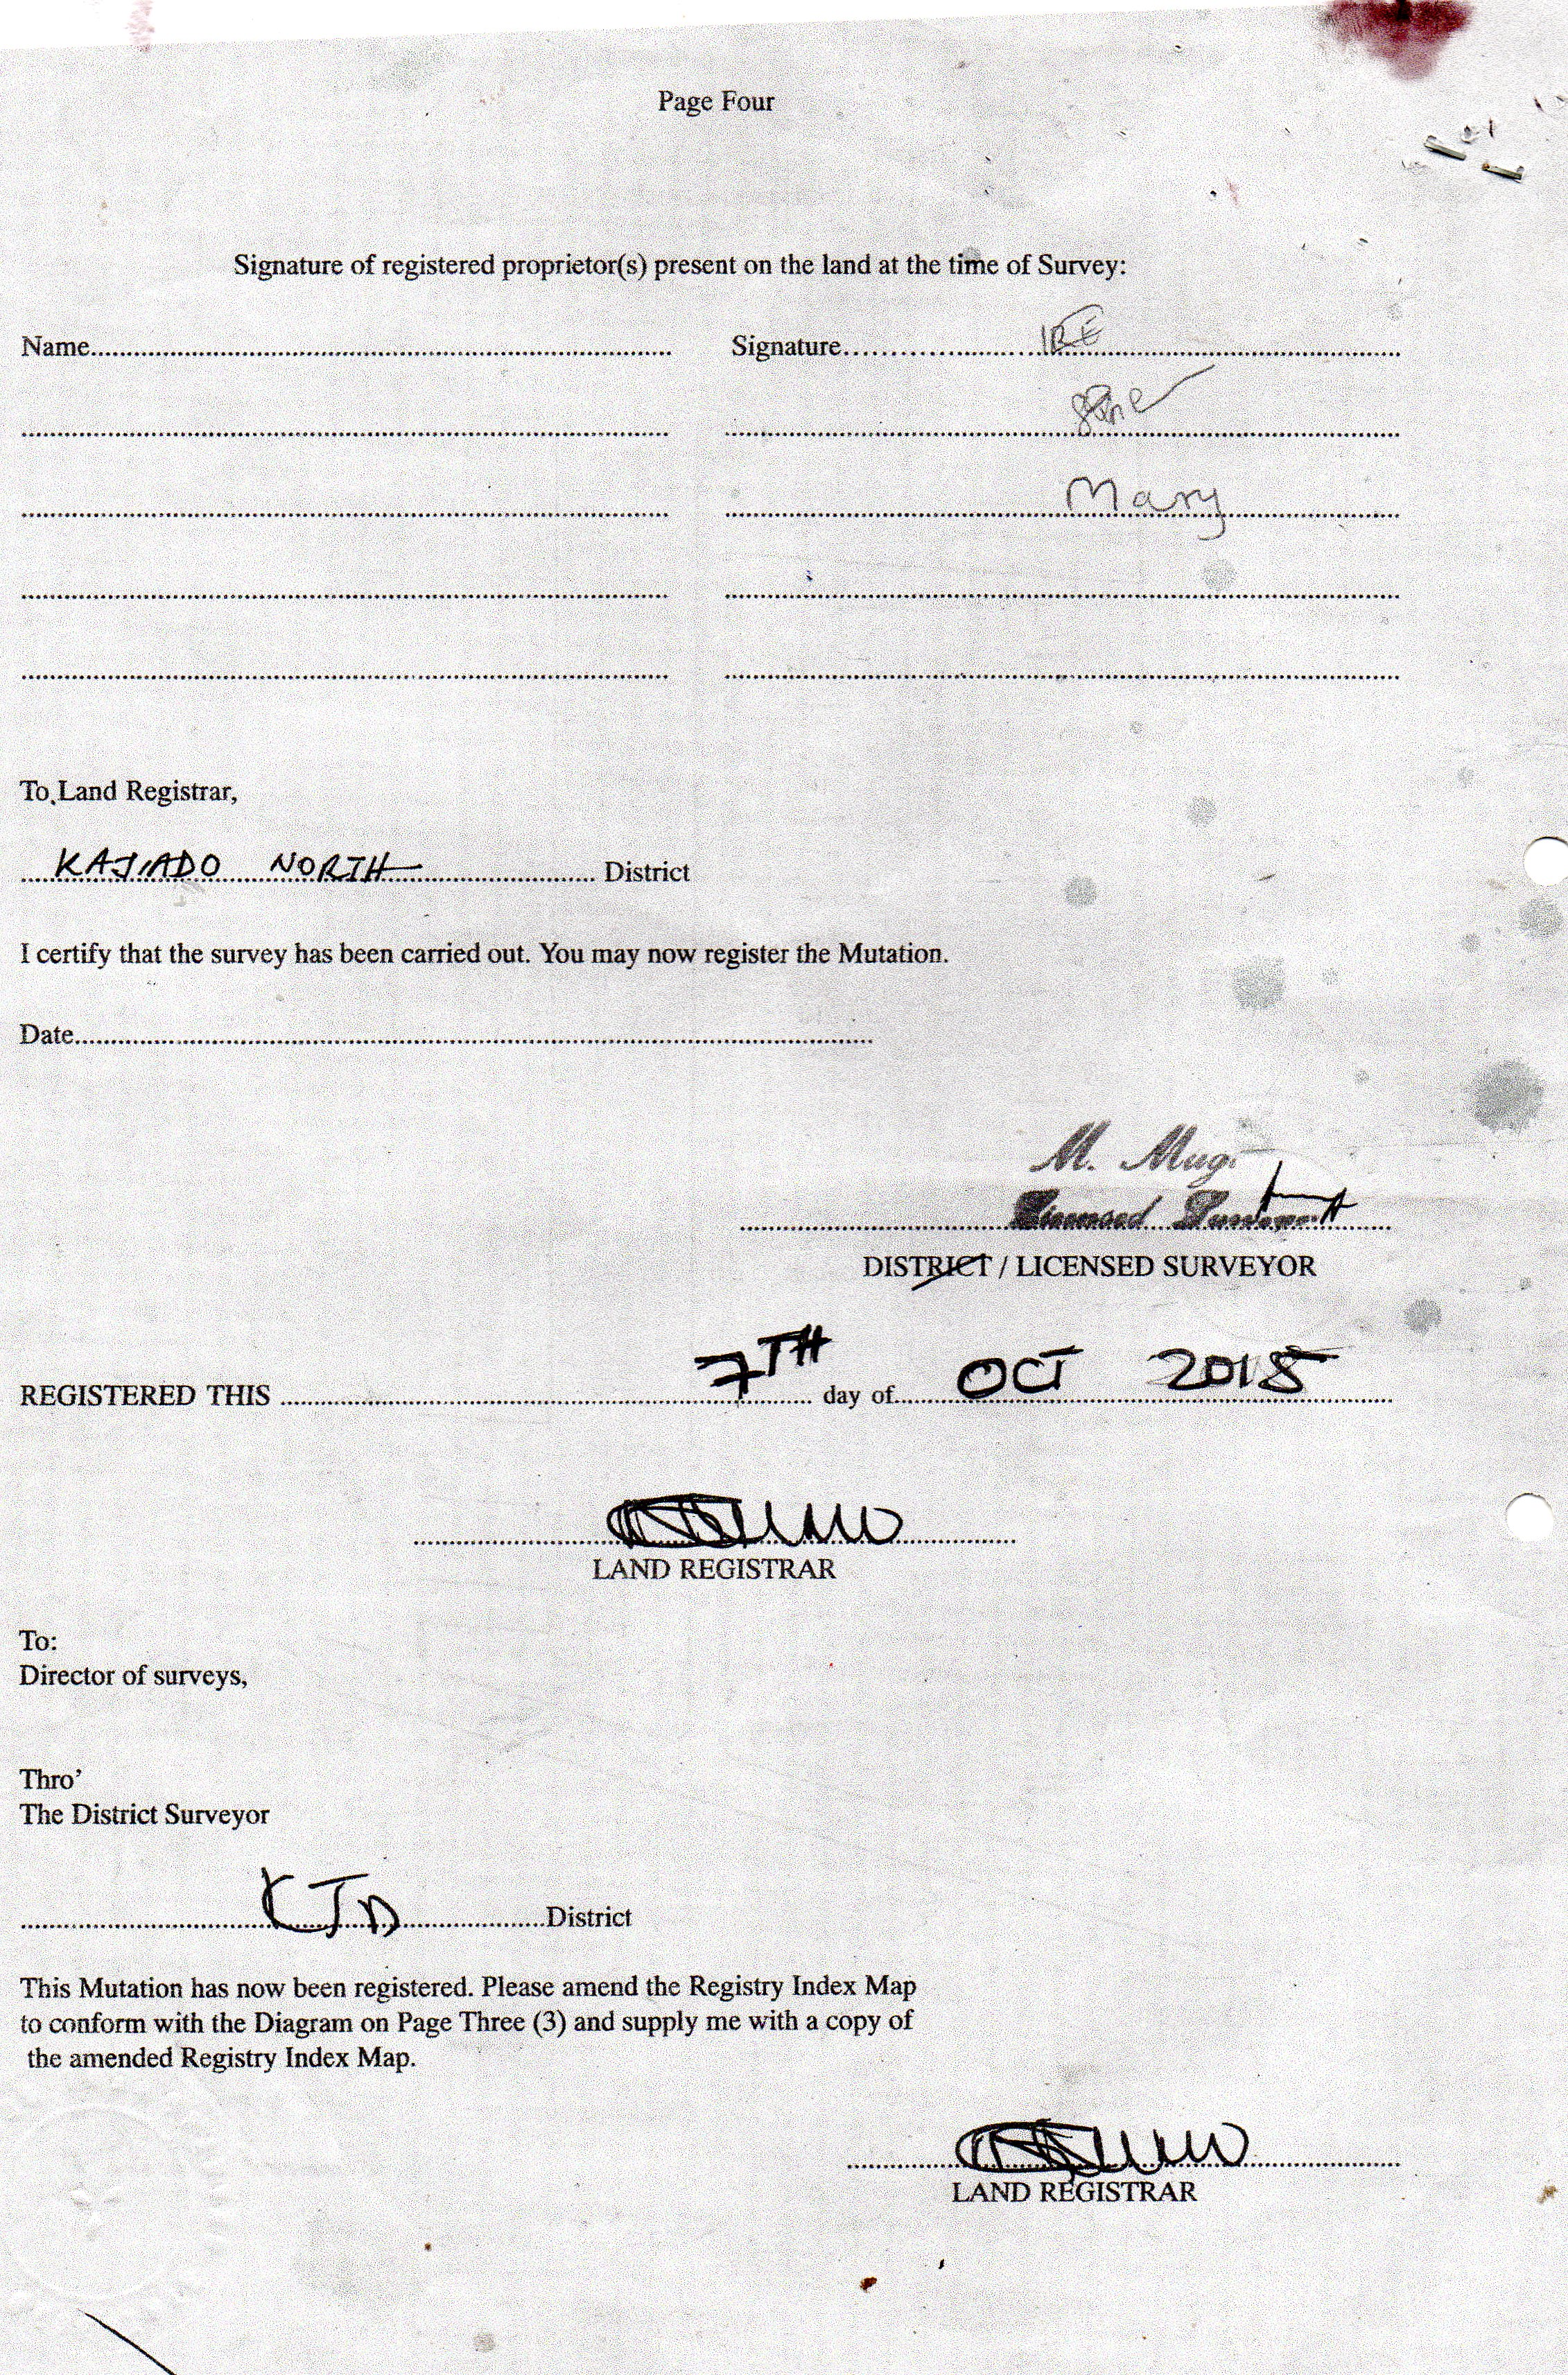 Page Four
Signature of registered proprietor(s) present on the land at the time of Survey:
Name.................... Signature.................... IRE
Mary
To, Land Registrar,
KAJIADO NORTH District
I certify that the survey has been carried out. You may now register the Mutation.
Date....................
M. Mug
Licensed
DISTRICT / LICENSED SURVEYOR
REGISTERED THIS 7TH day of OCT 2015
LAND REGISTRAR
To:
Director of surveys,
Thro'
The District Surveyor
KJD District
This Mutation has now been registered. Please amend the Registry Index Map
to conform with the Diagram on Page Three (3) and supply me with a copy of
the amended Registry Index Map.
LAND REGISTRAR